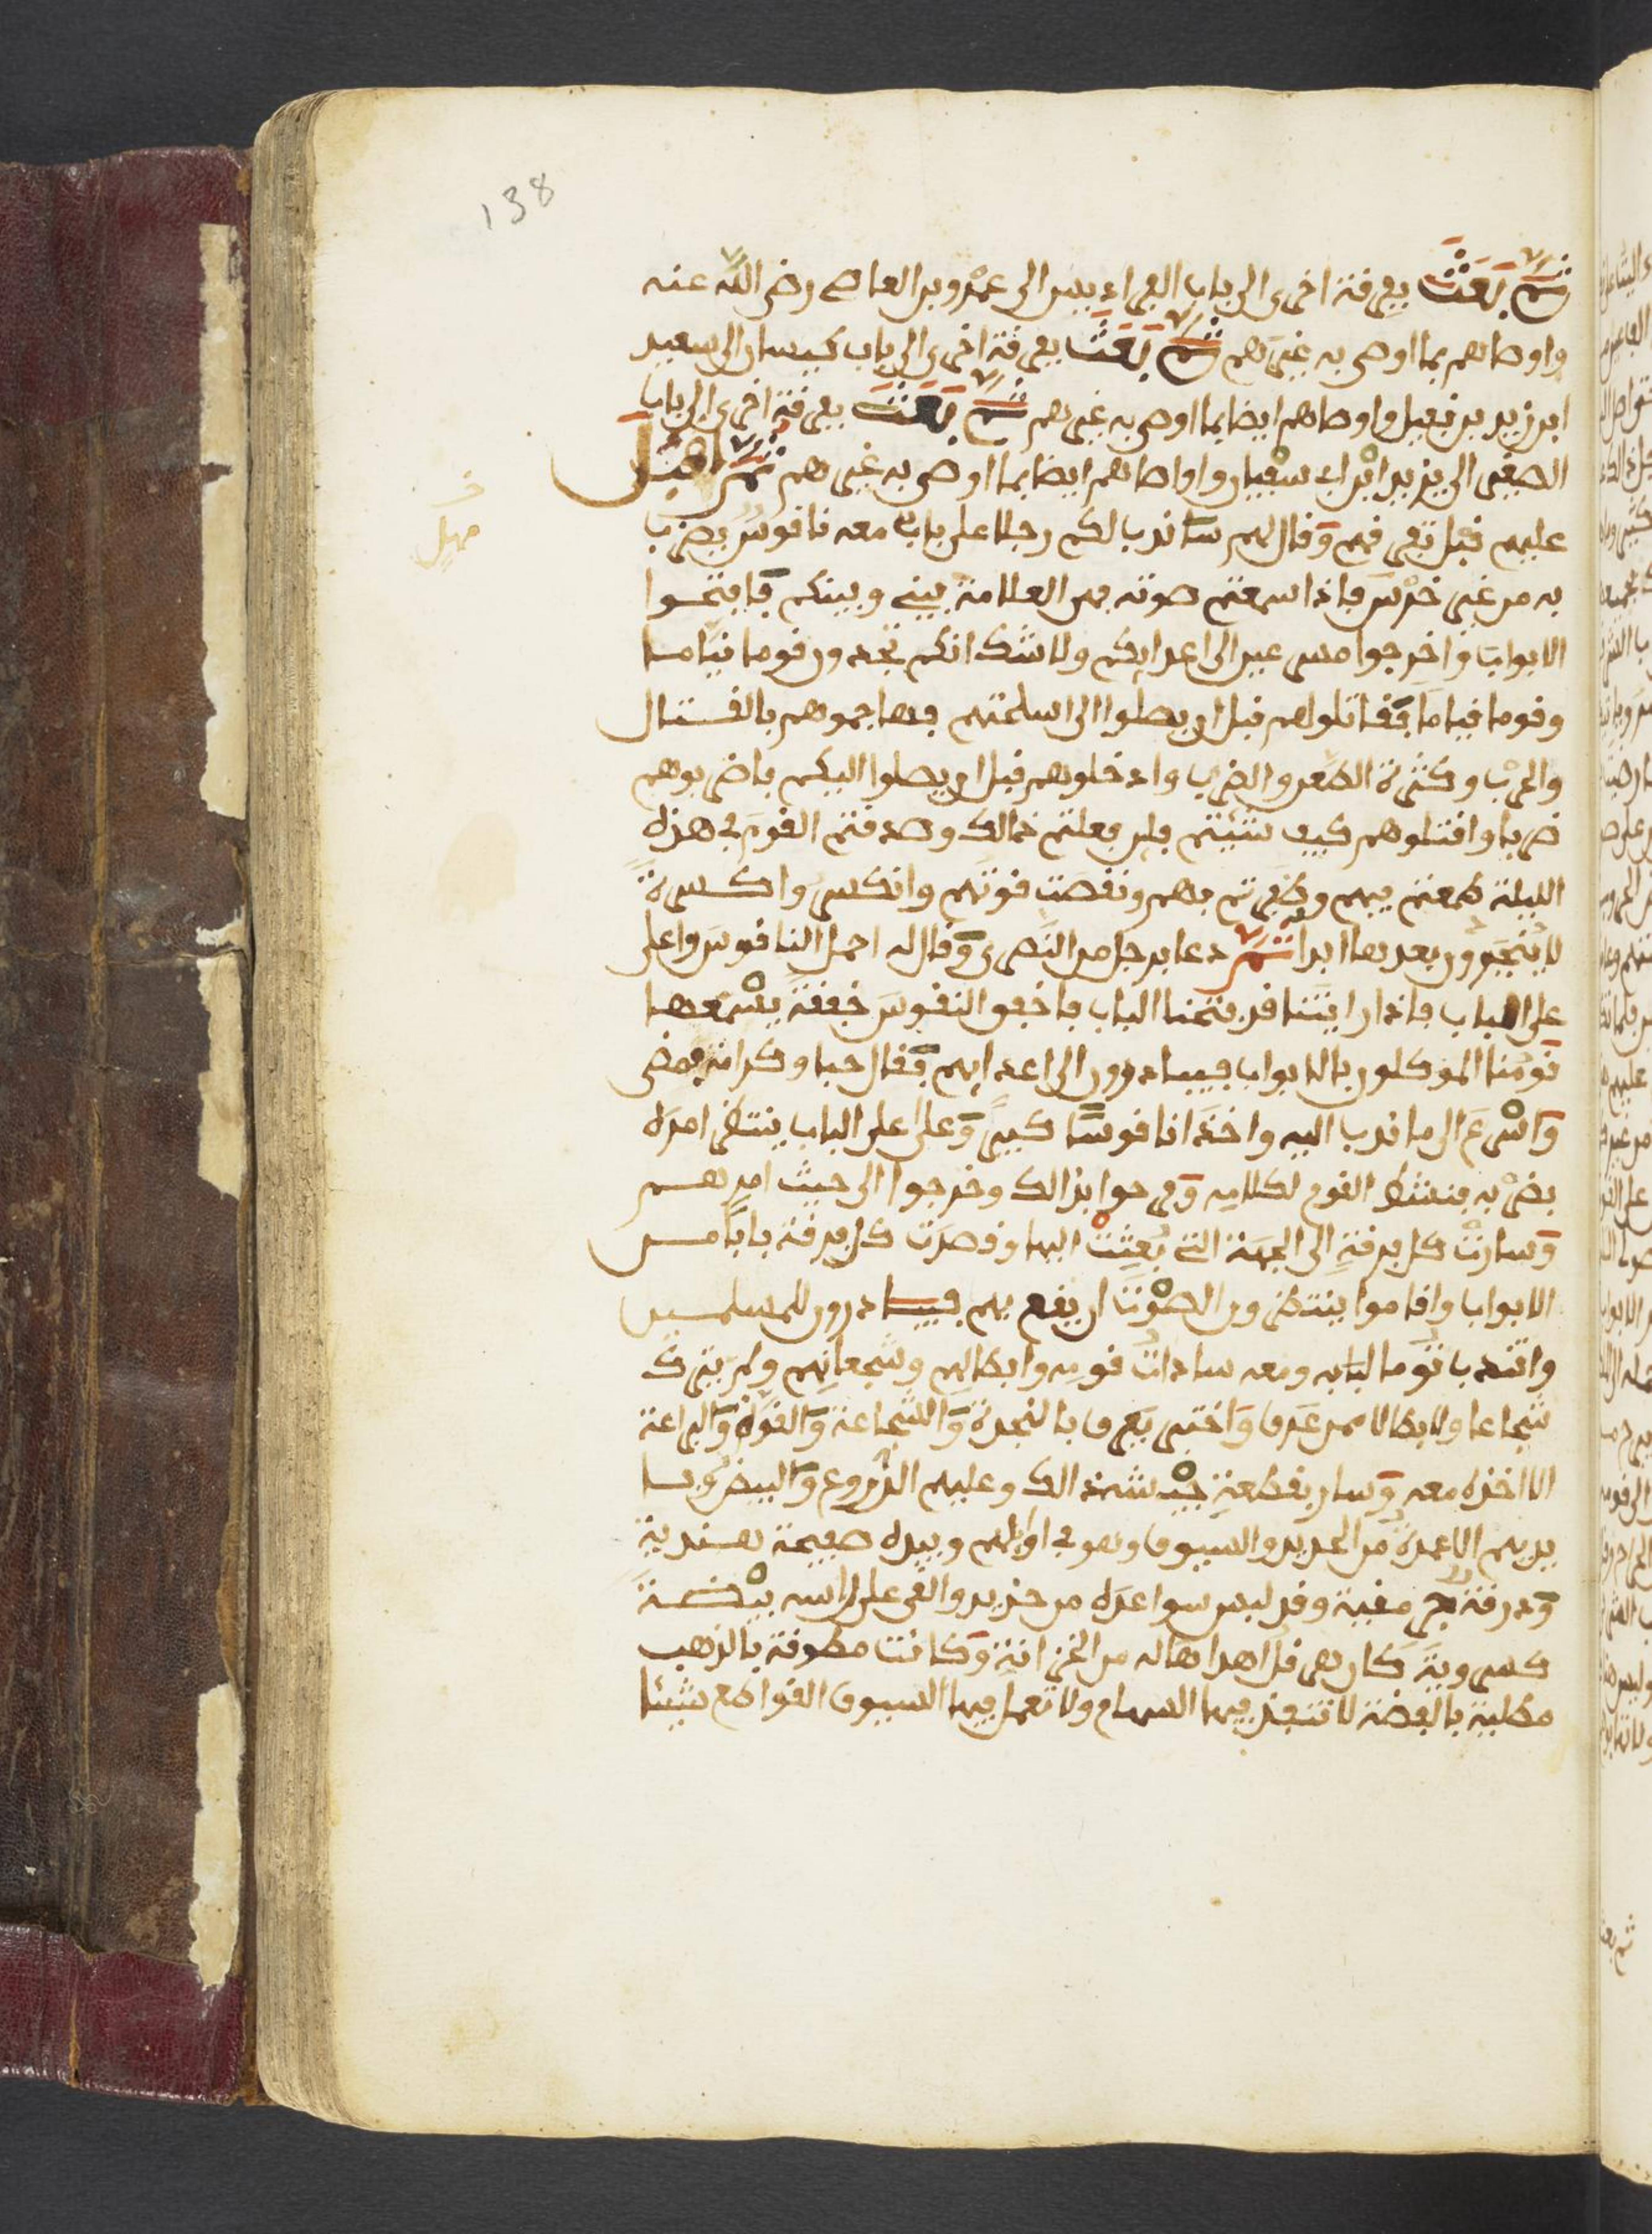 138
ثم بعث بفرقة اخرى الى باب الفراديس الى عمرو بن العاصي رضي الله عنه
واوصاهم بما اوصى به غيرهم ثم بعث بفرقة اخرى الى باب كيسان الى سعيد
ابن زيد بن نفيل واوصاهم ايضا بما اوصى به غيرهم ثم بعث بفرقة اخرى الى باب
الصغير الى يزيد ابن ابي سفيان واواصاهم ايضا بما اوصى به غيرهم ثم اقبل
مهيل
عليهم قبل تفرقهم وقال لهم ساندب لكم رجلا على بابي معه ناقوس يضرب
به من غير خرس فاذا سمعتم صوته فهي العلامة بيني وبينكم فافتحوا
الابواب واخرجوا مسرعين الى اعدايكم ولا شك انكم تجدون قوما نياما
وقوما قياما فقاتلولهم قبل ان يصلوا الى اسلحتهم وهاجموهم بالقتال
والحرب وكثرة الطعن والضرب وادخلوهم قبل ان يصلوا اليكم فاضربوهم
ضربا واقتلوهم كيف شئتم فلين فعلتم ذالك وصدقتم القوم في هذه
الليلة طمعتم فيهم وظفرتم بهم ونقصت قوتهم وانكسروا كسرة
لا ينجبرون بعدها ابدا ثم دعا برجل من النصرى وقال له احمل الناقوس واعلى
على الباب فاذا رايتنا قد فتحنا الباب فاخفق النقوس خفقة يسمعها
قومنا الموكلون بالابواب فيبادرون الى اعدايهم فقال حبا وكرامة فمضى
واسرع الى ما ندب اليه واخذ ناقوسا كبير وعلى على الباب ينتظر امره
بضربه فنشط القوم لكلامه وفرحوا بذالك وخرجوا الى حيث امرهم
وسارت كل فرقة الى الجهة التي بعثت اليها وقصدت كل فرقة بابا من
الابواب واقاموا ينتظرون الصوت ان يقع بهم فيبادرون للمسلمين
وانتدب توما لبابه ومعه سادات قومه وابطالهم وشجعانهم ولم يترك
شجاعا ولا بطالا ممن عرف واختبر يعرف بالنجدة والشجاعة والقوة والبراعة
الا اخذه معه وسار بقطعة جيشه ذالك وعليهم الدروع والبيض وبا
يديهم الاعمدة من الحديد والسيوف وهو في اوايلهم وبيده صفيحة هندية
ودرقة مغبية وقد لبس سواعده من حديد والقى على راسه بيضة
كسروية كان هرقل اهداها له من الخزانة وكانت مطوقة بالذهب
مطلية بالفضة لا تنفذ فيها السهام ولا تعمل فيها السيوف القواطع شيئا